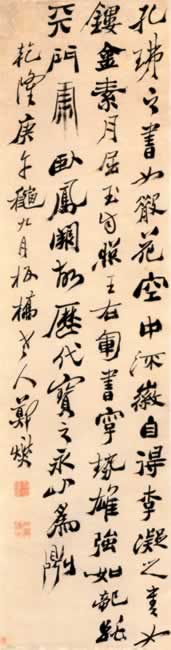 孔琳之書如散花空中流徽自得李凝之書如
鏤金素月屈玉自照王右軍書字勢雄強如龍跳
天門虎臥鳳闕故歷代寶之永以爲訓
乾隆庚午穐九月板橋老人鄭燮